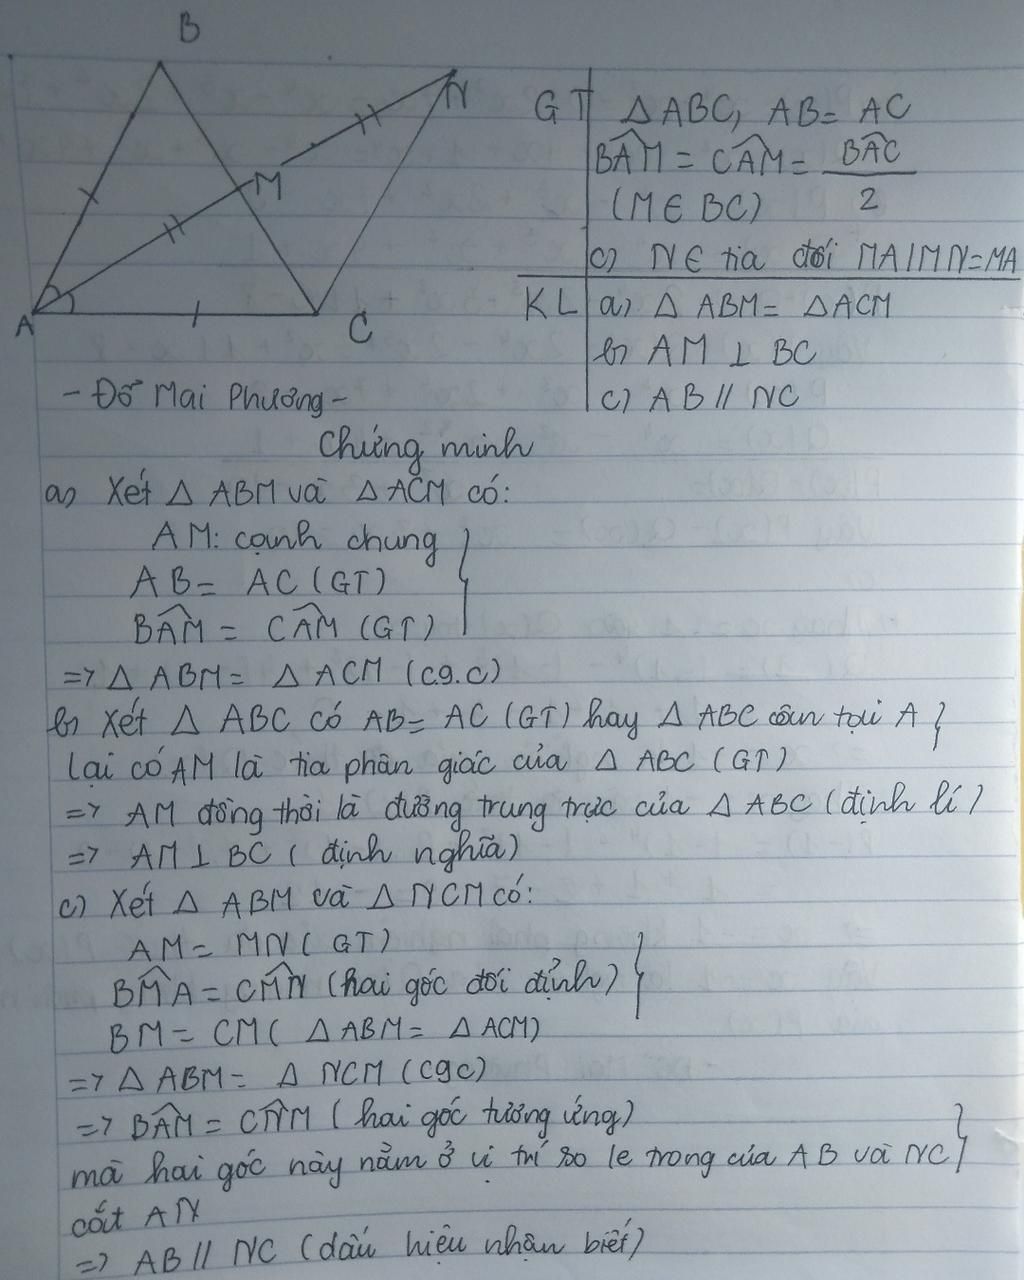 B
N
M
A
C
GT ΔABC, AB = AC
BÂM = CÂM = BÂC / 2
(M ∈ BC)
c) N ∈ tia đối MA / MN = MA
KL a) Δ ABM = Δ ACM
b) AM ⊥ BC
c) AB // NC
- Đỗ Mai Phương -
Chứng minh
a) Xét Δ ABM và Δ ACM có:
AM: cạnh chung
AB = AC (GT)
BÂM = CÂM (GT)
=> Δ ABM = Δ ACM (c.g.c)
b) Xét Δ ABC có AB = AC (GT) hay Δ ABC cân tại A
lại có AM là tia phân giác của Δ ABC (GT)
=> AM đồng thời là đường trung trực của Δ ABC (định lí)
=> AM ⊥ BC (định nghĩa)
c) Xét Δ ABM và Δ NCM có:
AM = MN (GT)
BM̂A = CM̂N (hai góc đối đỉnh)
BM = CM (Δ ABM = Δ ACM)
=> Δ ABM = Δ NCM (cgc)
=> BÂM = CN̂M (hai góc tương ứng)
mà hai góc này nằm ở vị trí so le trong của AB và NC
cắt AN
=> AB // NC (dấu hiệu nhận biết)